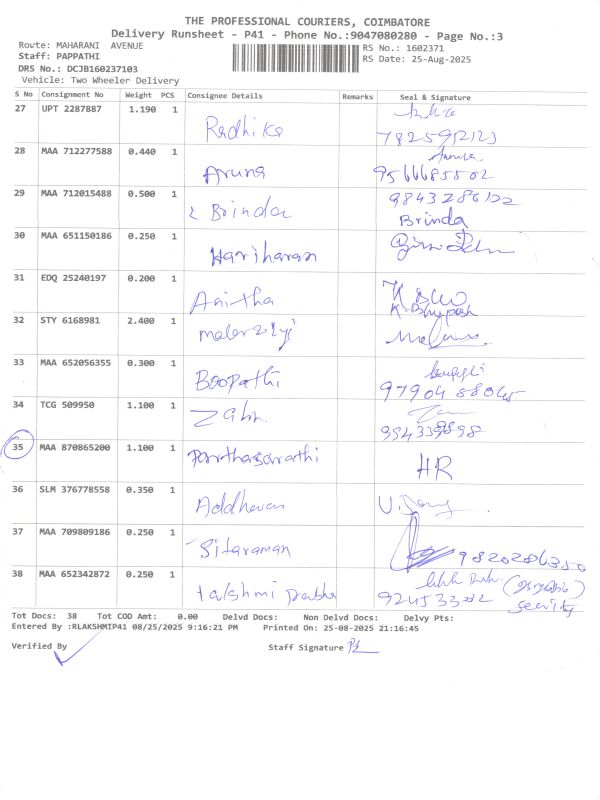 THE PROFESSIONAL COURIERS, COIMBATORE
Delivery Runsheet - P41 - Phone No.:9047080280 - Page No.:3
Route: MAHARANI AVENUE
RS No.: 1602371
Staff: PAPPATHI
RS Date: 25-Aug-2025
DRS No.: DCJB160237103
Vehicle: Two Wheeler Delivery
S No Consignment No Weight PCS Consignee Details Remarks Seal & Signature
27 UPT 2287887 1.190 1 Radhika
28 MAA 712277588 0.440 1 Aruna
9566685502
29 MAA 712015488 0.500 1 Brinda
Brinda
30 MAA 651150186 0.250 1 Hariharan
31 EDQ 25240197 0.200 1 Anitha
32 STY 6168981 2.400 1
33 MAA 652056355 0.300 1 Boopathi
34 TCG 509950 1.100 1
35 MAA 870865200 1.100 1 Parthasarathi HR
36 SLM 376778558 0.350 1 Aadhavan
37 MAA 709809186 0.250 1 Sitaraman
9820286380
38 MAA 652342872 0.250 1 Lakshmi Prabha
Tot Docs: 38 Tot COD Amt: 0.00 Delvd Docs: Non Delvd Docs: Delvy Pts:
Entered By :RLAKSHMIP41 08/25/2025 9:16:21 PM Printed On: 25-08-2025 21:16:45
Verified By Staff Signature